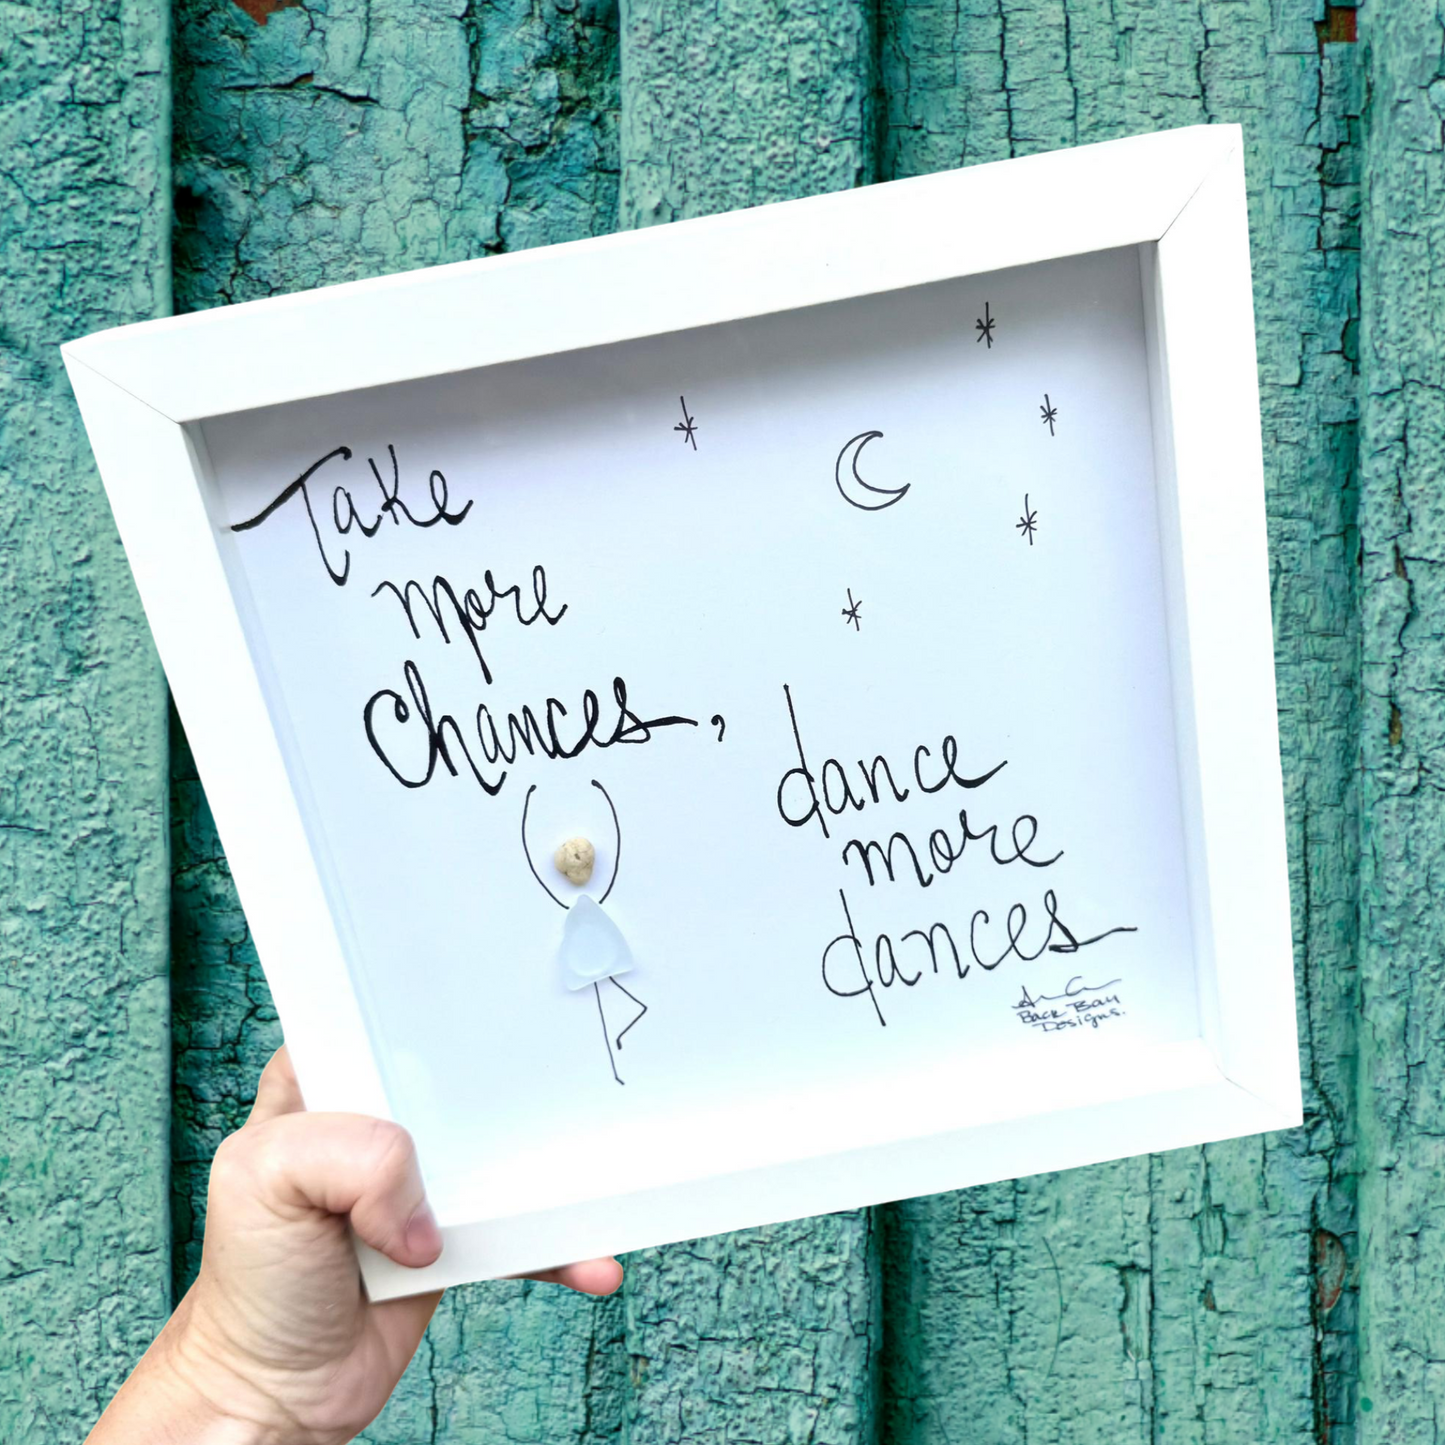 Take
more
Chances,
dance
more
dances
Back Bay
Designs.